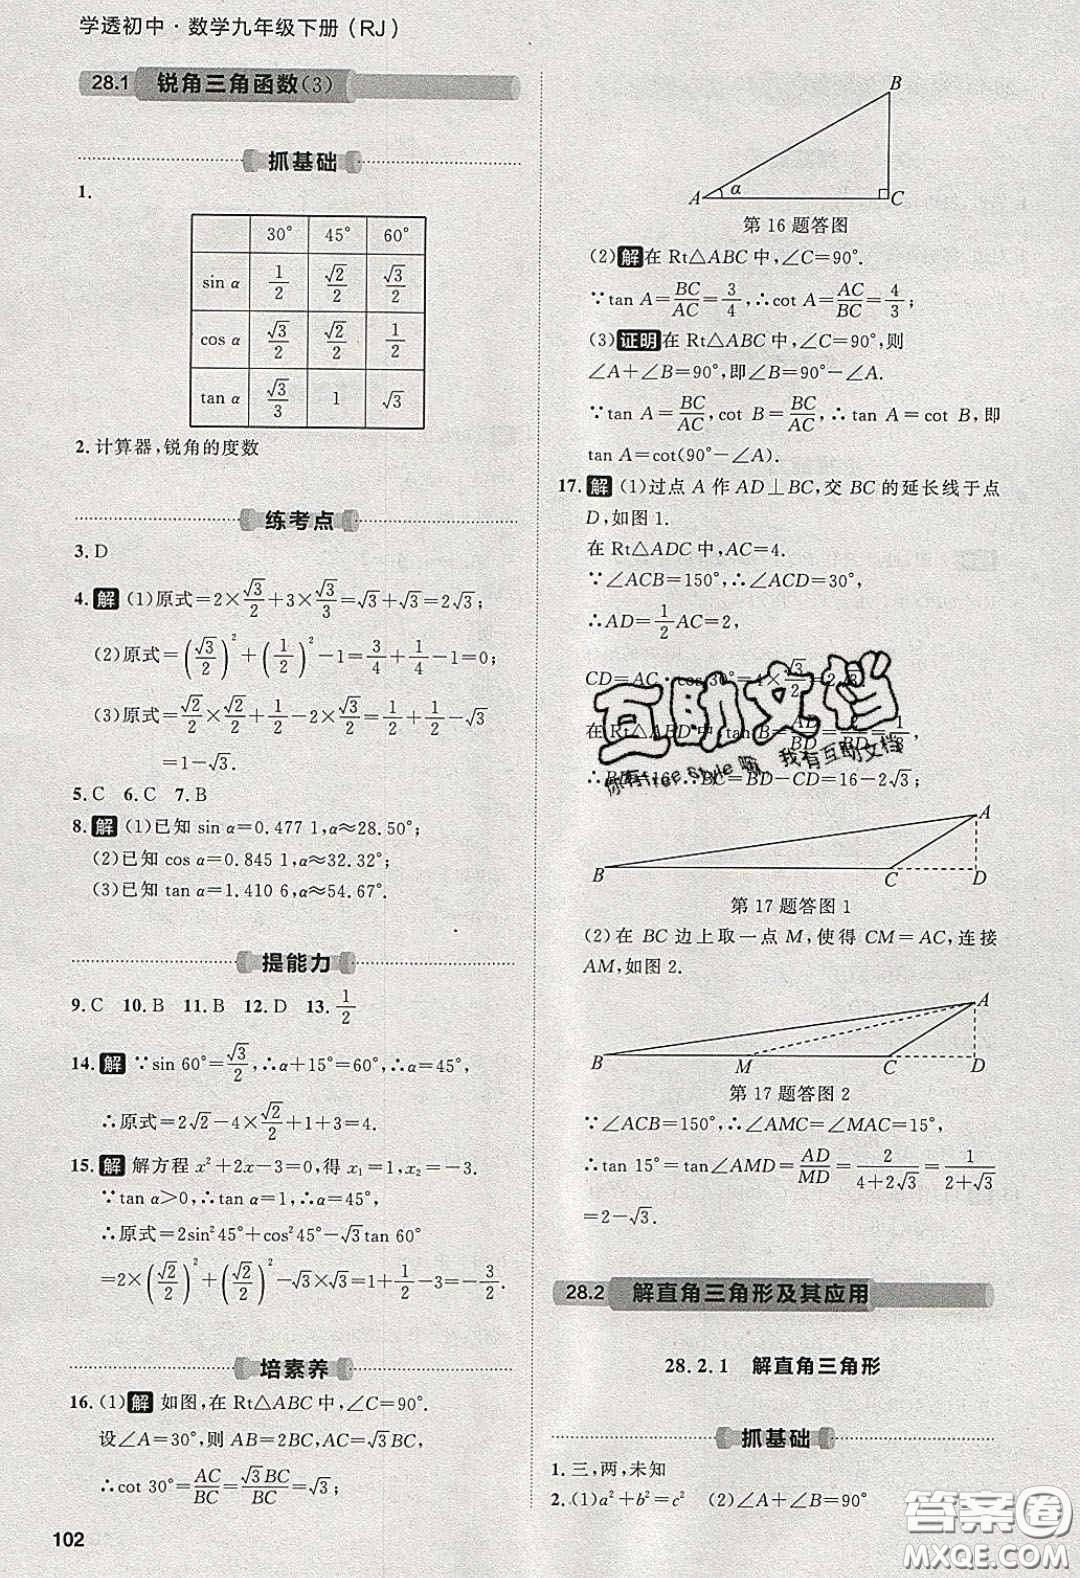 学透初中·数学九年级下册(RJ)
28.1 锐角三角函数(3)
抓基础
1.
30° 45° 60°
sin α 1/2 √2/2 √3/2
cos α √3/2 √2/2 1/2
tan α √3/3 1 √3
2.计算器,锐角的度数
练考点
3.D
4.解(1)原式=2×√3/2+3×√3/3=√3+√3=2√3;
(2)原式=(√3/2)²+(1/2)²-1=3/4+1/4-1=0;
(3)原式=√2/2×√2/2+1/2-2×√3/2=1/2+1/2-√3
=1-√3.
5.C 6.C 7.B
8.解(1)已知 sin α=0.477 1,α≈28.50°;
(2)已知 cos α=0.845 1,α≈32.32°;
(3)已知 tan α=1.410 6,α≈54.67°.
提能力
9.C 10.B 11.B 12.D 13.1/2
14.解∵sin 60°=√3/2,∴α+15°=60°,∴α=45°,
∴原式=2√2-4×√2/2+1+3=4.
15.解 解方程 x²+2x-3=0,得 x₁=1,x₂=-3.
∵tan α>0,∴tan α=1,∴α=45°,
∴原式=2sin²45°+cos²45°-√3tan 60°
=2×(√2/2)²+(√2/2)²-√3×√3=1+1/2-3=-3/2.
培素养
16.(1)解 如图,在 Rt△ABC 中,∠C=90°.
设∠A=30°,则 AB=2BC,AC=√3BC,
∴cot 30°=AC/BC=√3BC/BC=√3;
102
B
A α C
第16题答图
(2)解在 Rt△ABC 中,∠C=90°.
∵tan A=BC/AC=3/4,∴cot A=AC/BC=4/3;
(3)证明在 Rt△ABC 中,∠C=90°,则
∠A+∠B=90°,即∠B=90°-∠A.
∵tan A=BC/AC,cot B=BC/AC,∴tan A=cot B,即
tan A=cot(90°-∠A).
17.解(1)过点 A 作 AD⊥BC,交 BC 的延长线于点
D,如图1.
在 Rt△ADC 中,AC=4.
∵∠ACB=150°,∴∠ACD=30°,
∴AD=1/2AC=2,
CD=AC·cos 30°=4×√3/2=2√3.
在 Rt△ABD 中,tan B=AD/BD=2/BD=1/8,
∴BD=16,∴BC=BD-CD=16-2√3;
互助文档
你有free style嘛 我有互助文档
A
B C D
第17题答图1
(2)在 BC 边上取一点 M,使得 CM=AC,连接
AM,如图2.
A
B M C D
第17题答图2
∵∠ACB=150°,∴∠AMC=∠MAC=15°,
∴tan 15°=tan∠AMD=AD/MD=2/(4+2√3)=1/(2+√3)
=2-√3.
28.2 解直角三角形及其应用
28.2.1 解直角三角形
抓基础
1.三,两,未知
2.(1)a²+b²=c² (2)∠A+∠B=90°
答案圈
MXQE.COM